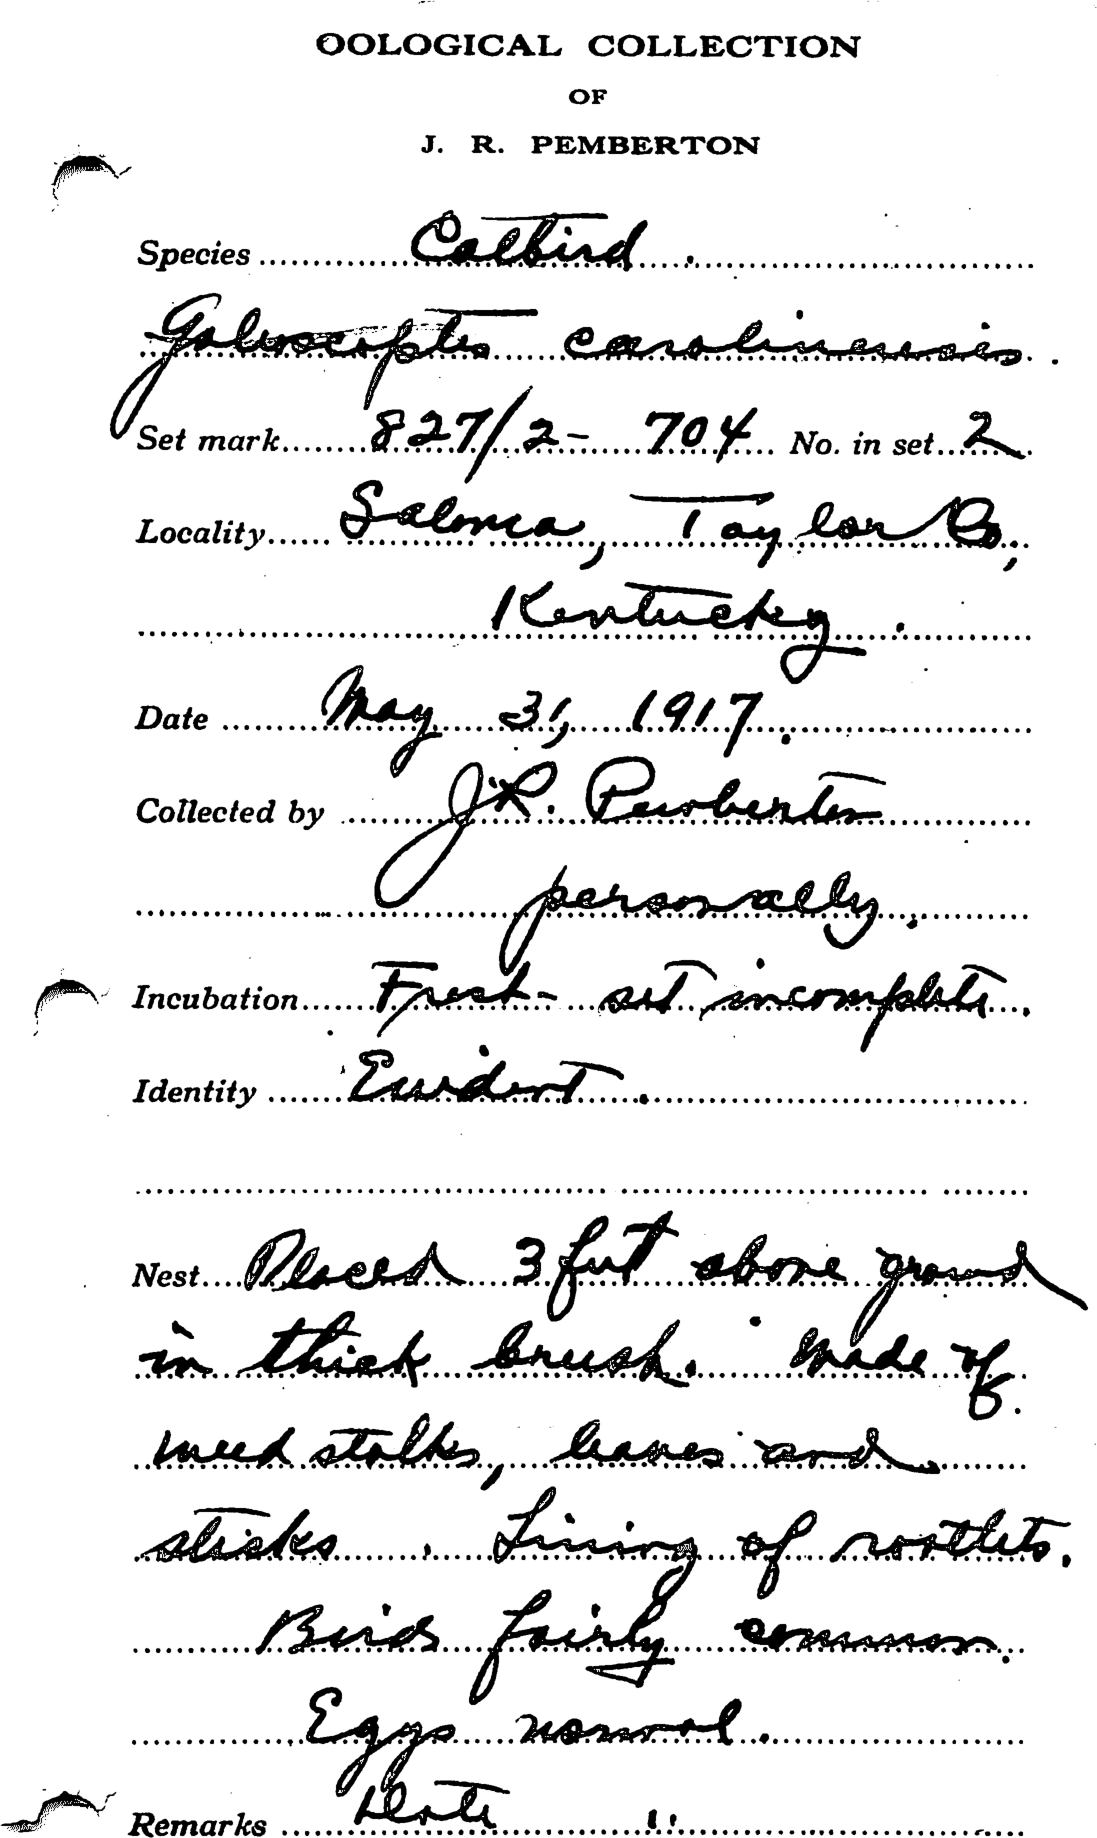 OOLOGICAL COLLECTION
OF
J. R. PEMBERTON
Species Catbird.
Galeoscoptes carolinensis.
Set mark 827/2 - 704 No. in set 2
Locality Saloma, Taylor Co,
Kentucky.
Date May 31, 1917.
Collected by J.R. Pemberton
personally.
Incubation Fresh - set incomplete.
Identity Evident.
Nest Placed 3 feet above ground
in thick brush. Made of
weed stalks, leaves and
sticks. Lining of rootlets.
Birds fairly common.
Eggs normal.
Remarks Date